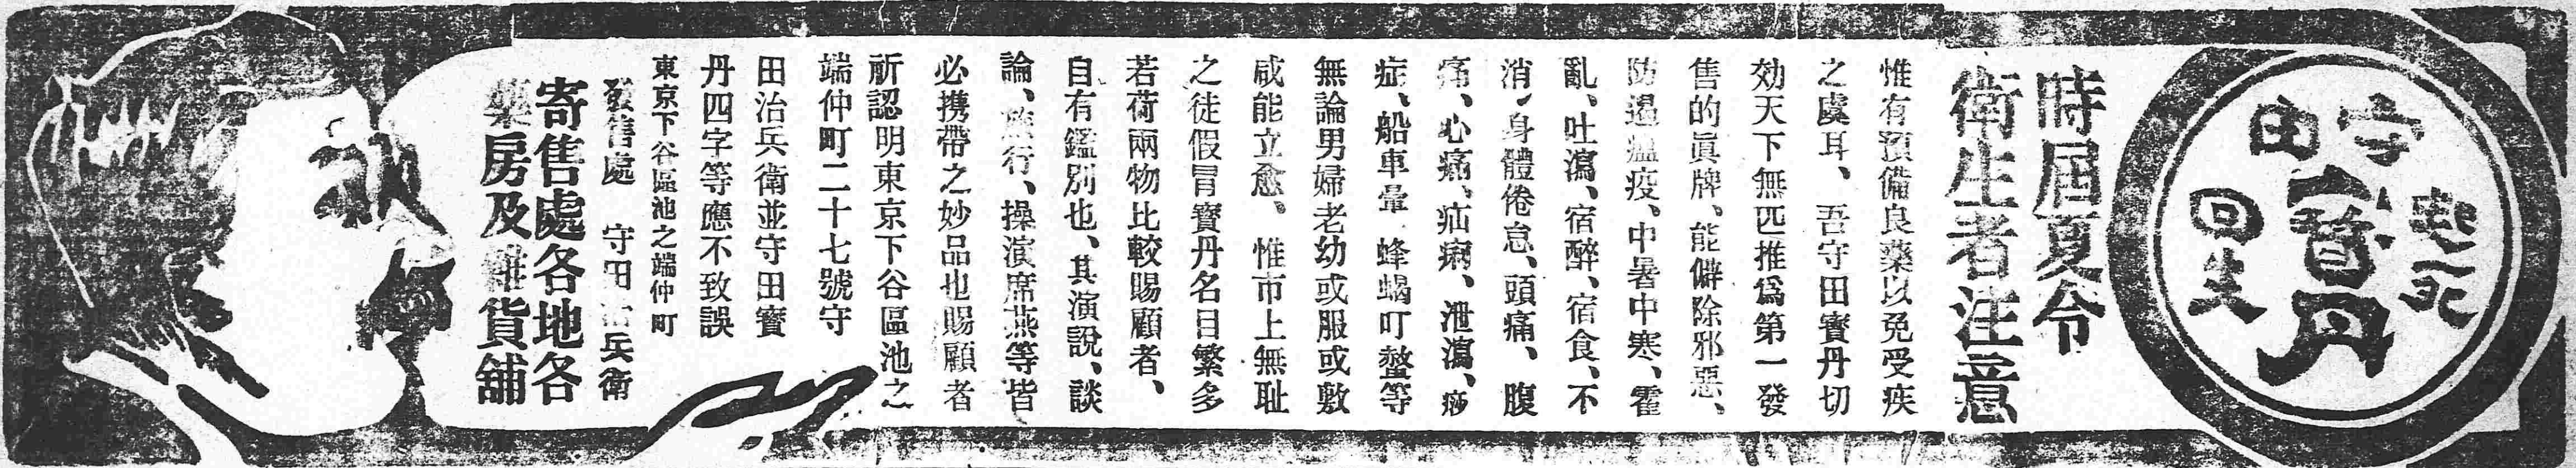 守田
寶丹
起死
回生
時屆夏令
衛生者注意
惟有預備良藥以免受疾
之處耳、吾守田寶丹切
効天下無匹推爲第一發
售的眞牌、能僻除邪惡、
防遏瘟疫、中暑中寒、霍
亂、吐瀉、宿醉、宿食、不
消、身體倦怠、頭痛、腹
痛、心痛、疝痢、泄瀉、痧
症、船車暈、蜂蝎叮螫等
無論男婦老幼或服或敷
咸能立愈、惟市上無耻
之徒假冒寶丹名目繁多
若荷兩物比較賜顧者、
自有鑑別也、其演說、談
論、旅行、操演席燕等皆
必携帶之妙品也賜顧者
祈認明東京下谷區池之
端仲町二十七號守
田治兵衛並守田寶
丹四字等應不致誤
東京下谷區池之端仲町
發售處 守田治兵衛
寄售處各地各
藥房及雜貨舖